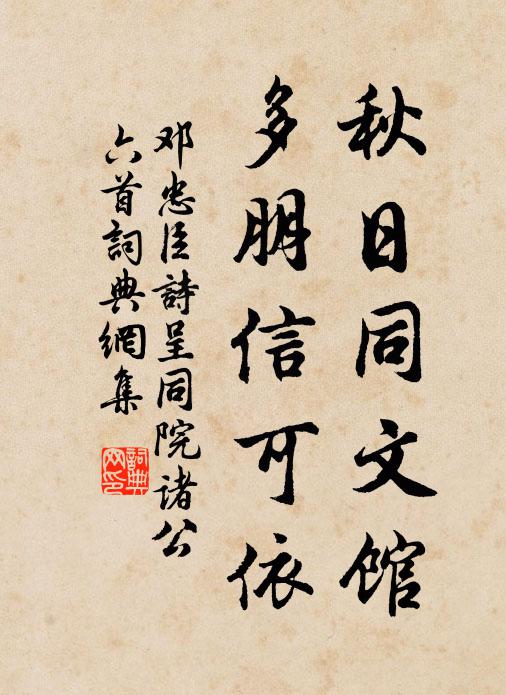 秋日同文館
多朋信可依
邓忠臣詩呈同院諸公
六首詞典網集
詞典網印